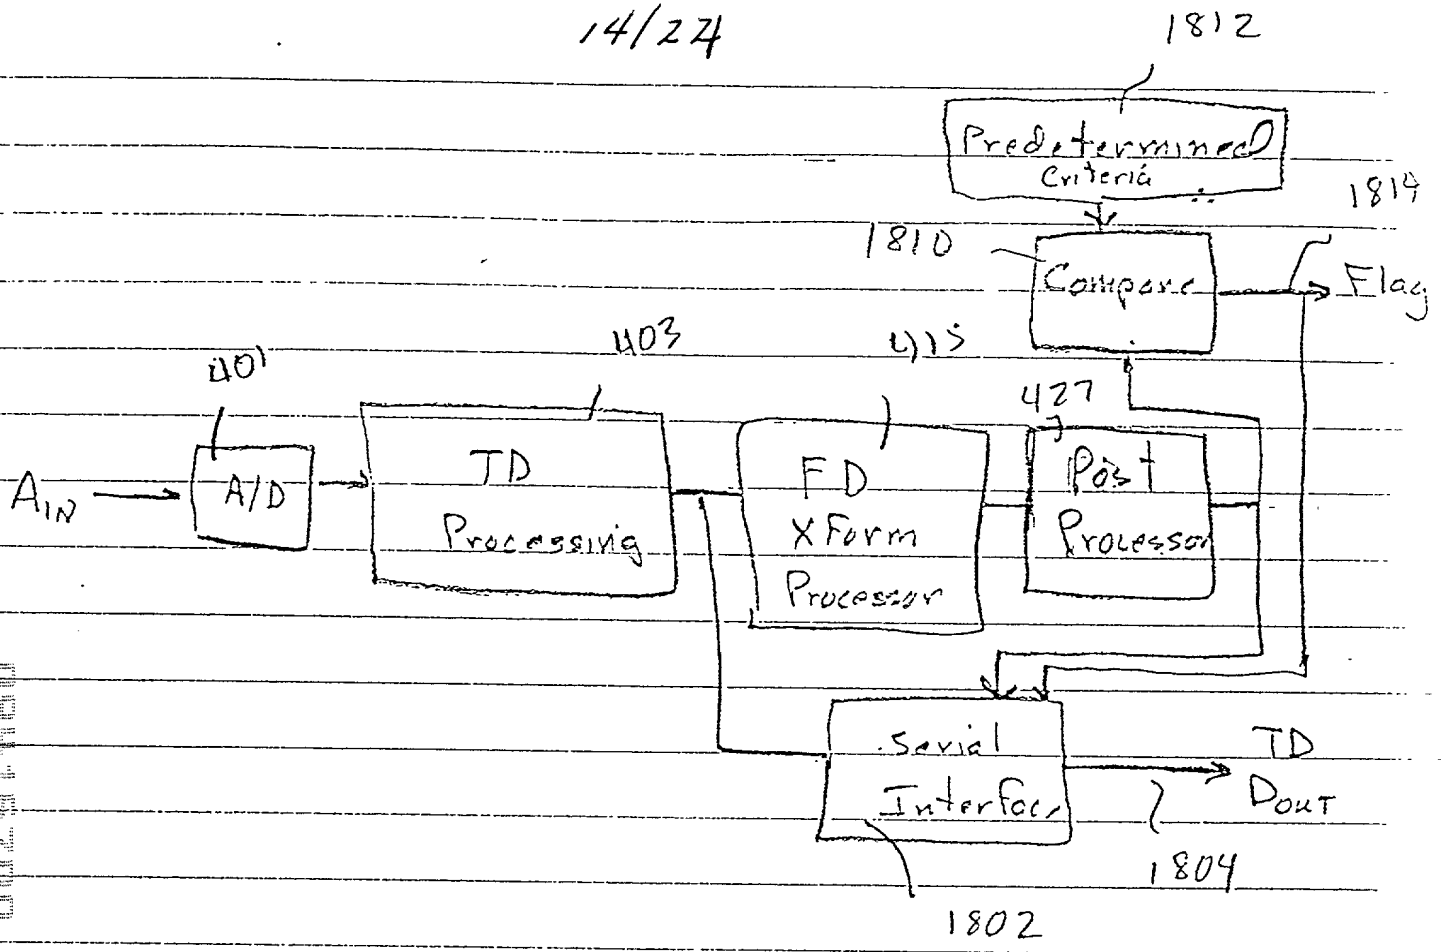 14/22
1812
Predetermined
Criteria
1814
1810
Compare
Flag
401
403
415
427
AIN
A/D
TD
Processing
FD
XForm
Processor
Post
Processor
Serial
Interface
TD
DOUT
1804
1802